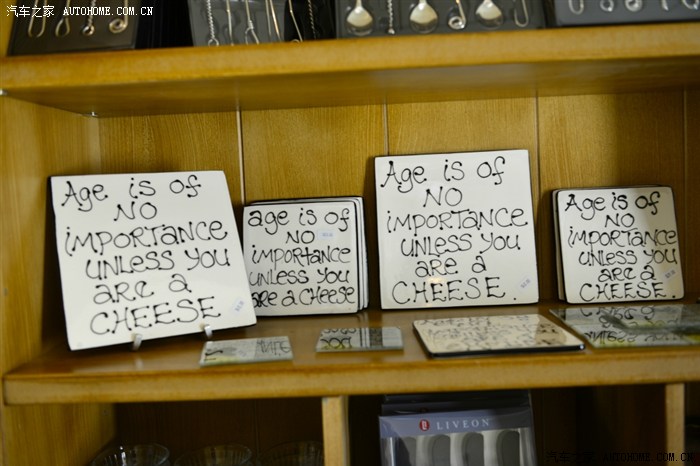 汽车之家 AUTOHOME.COM.CN
Age is of
NO
importance
unless you
are a
CHEESE
age is of
NO
importance
unless you
are a cheese
Age is of
NO
importance
unless you
are a
CHEESE.
Age is of
NO
importance
unless you
are a
CHEESE.
LIVEON
汽车之家 AUTOHOME.COM.CN